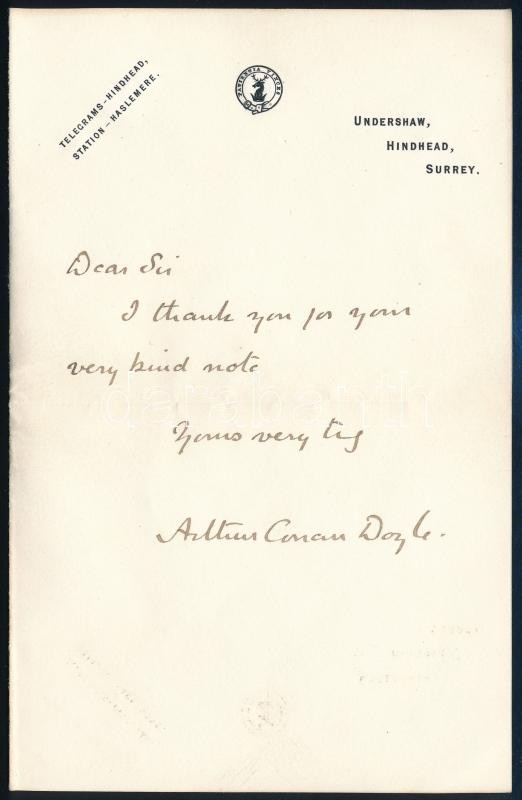 TELEGRAMS-HINDHEAD,
STATION-HASLEMERE.
UNDERSHAW,
HINDHEAD,
SURREY.
Dear Sir
I thank you for your
very kind note
Yours very try
Arthur Conan Doyle.